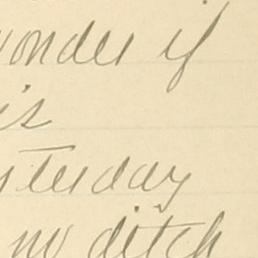 wonder if
is
yesterday
no ditch